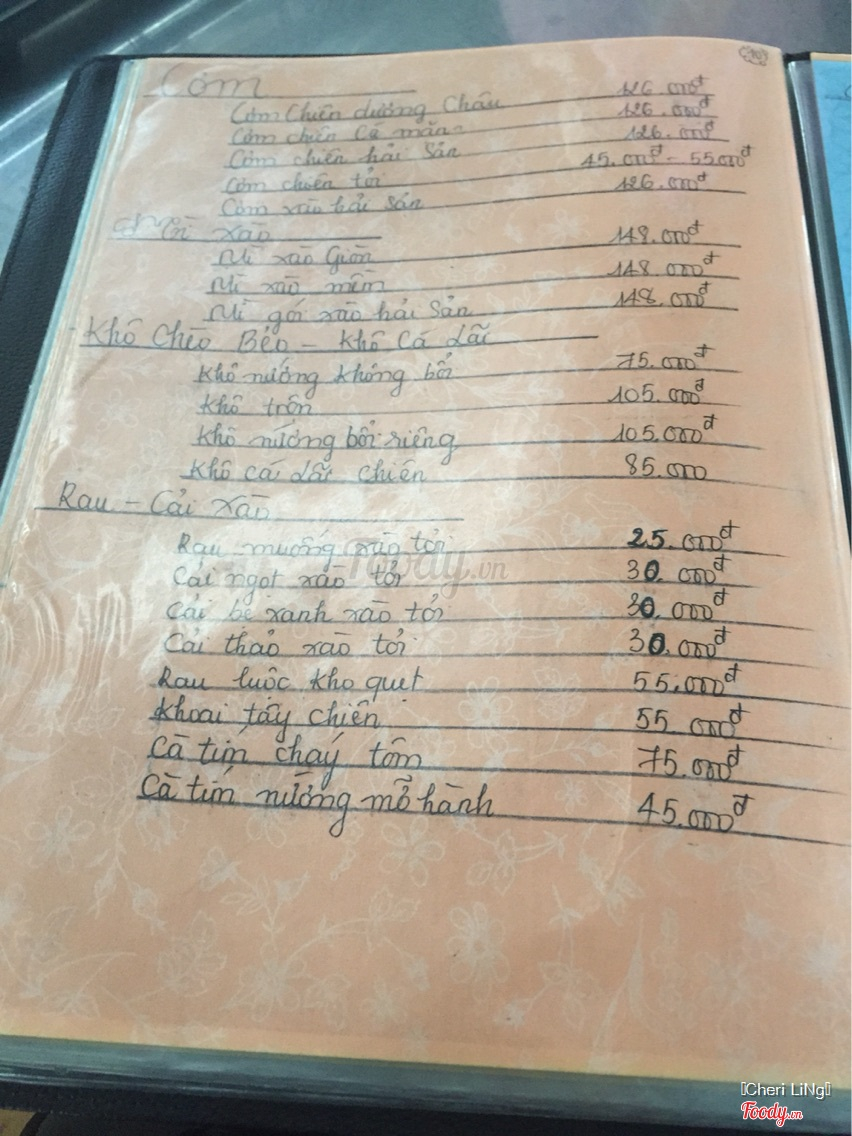 Cơm
Cơm Chiên dương Châu 126.000đ
Cơm chiên Cá mặn 126.000đ
Cơm chiên hải Sản 126.000đ
Cơm chiên tỏi 45.000đ - 55.000đ
Cơm xào hải sản 126.000đ
Mì xào
Mì xào Giòn 148.000đ
Mì xào mềm 148.000đ
Mì gói xào hải Sản 148.000đ
Khô Chèo Bẻo - Khô Cá dứa
Khô nướng không bơi 75.000đ
Khô trộn 105.000đ
Khô nướng bơi riêng 105.000đ
Khô cá dứa chiên 85.000
Rau - Cải xào
Rau muống xào tỏi 25.000đ
Cải ngọt xào tỏi 30.000đ
Cải bẹ xanh xào tỏi 30.000đ
Cải thảo xào tỏi 30.000đ
Rau luộc kho quẹt 55.000đ
Khoai tây chiên 55.000đ
Cà tím cháy tôm 75.000đ
Cà tím nướng mỡ hành 45.000đ
Foody.vn
Cheri LiNg
Foody.vn